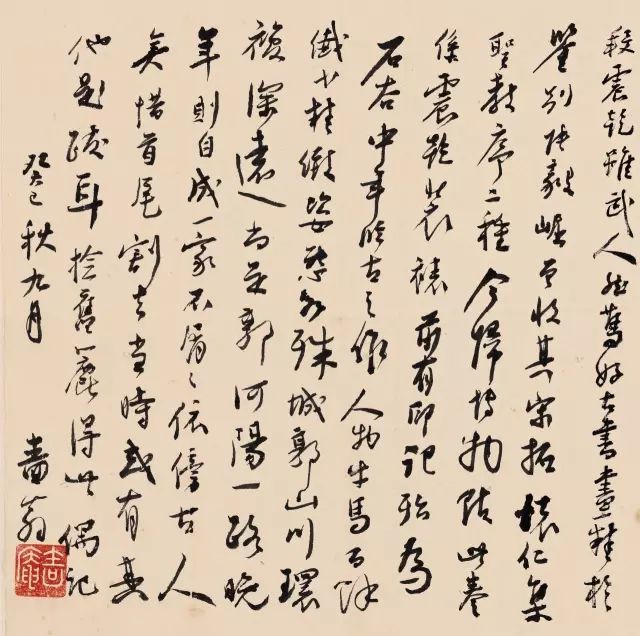 震乾雖武人然篤好古書畫精於
鑒別張曾收其宋拓懷仁集
聖教序二種今歸博物院此卷
係震乾裝裱前有印記殆為
石谷中年臨古之作人物牛馬百餘
姿態各殊城郭山川環
複深遠尚是郭河陽一路晚
年則自成一家不屑〻依傍古人
矣惜首尾割去當時或有其
他題跋耳撿舊簏得此偶記
癸巳秋九月
嗇翁